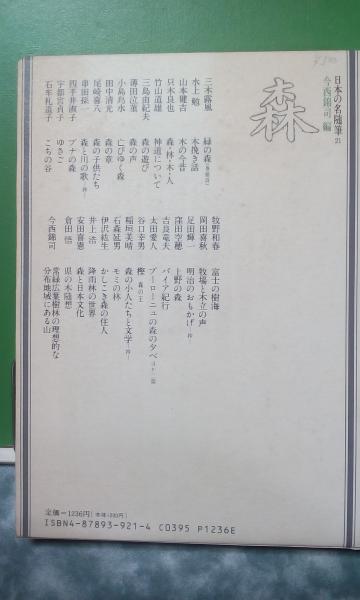 日本の名随筆21
今西錦司編
森
三木露風 緑の森
水上勉 木挽き話
山本健吉 木の今昔
只木良也 森・林・木・人
竹山道雄 神道について
三島由紀夫 森の遊び
薄田泣菫 森の声
小島烏水 亡びゆく森
田中清光 森の章
尾崎喜八 森の子供たち
串田孫一 森と川の歌
四手井淑子 ブナの森
宇都宮貞子 ゆさご
石牟礼道子 こちの谷
牧野和春 富士の樹海
岡田喜秋 牧場と木立の声
足田輝一 明治のおもかげ
窪田空穂 上野の森
吉良竜夫 パイア紀行
太田愛人 ブーローニュの森の夕べ
谷口幸男 樫
稲垣美晴 森の小人たちと文学
石森延男 モミの林
伊沢紘生 かしこき森の住人
井上浩 降雨林の世界
安田喜憲 森と日本文化
倉田悟 県の木随想
今西錦司 常緑広葉樹林の理想的な分布地域にある山
定価=1236円
ISBN4-87893-921-4 C0395 P1236E